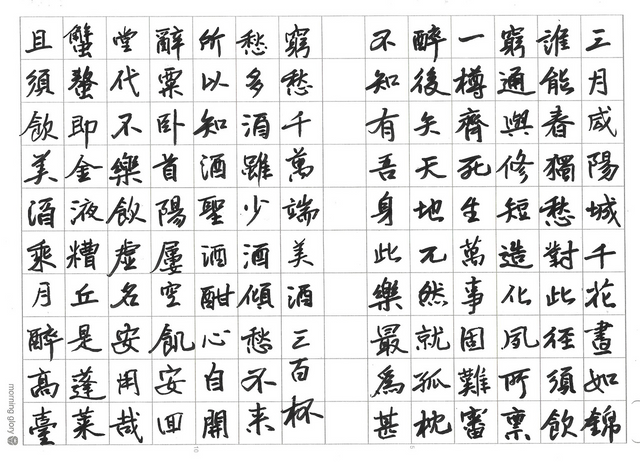 三月咸陽城千花晝如錦
誰能春獨愁對此徑須飲
窮通與修短造化夙所稟
一樽齊死生萬事固難審
醉後矢天地兀然就孤枕
不知有吾身此樂最為甚
窮愁千萬端美酒三百杯
愁多酒雖少酒傾愁不來
所以知酒聖酒酣心自開
辭粟臥首陽屢空飢安回
堂代不樂飲虛名安用哉
蟹螯即金液糟丘是蓬萊
且須飲美酒乘月醉高臺
morning glory